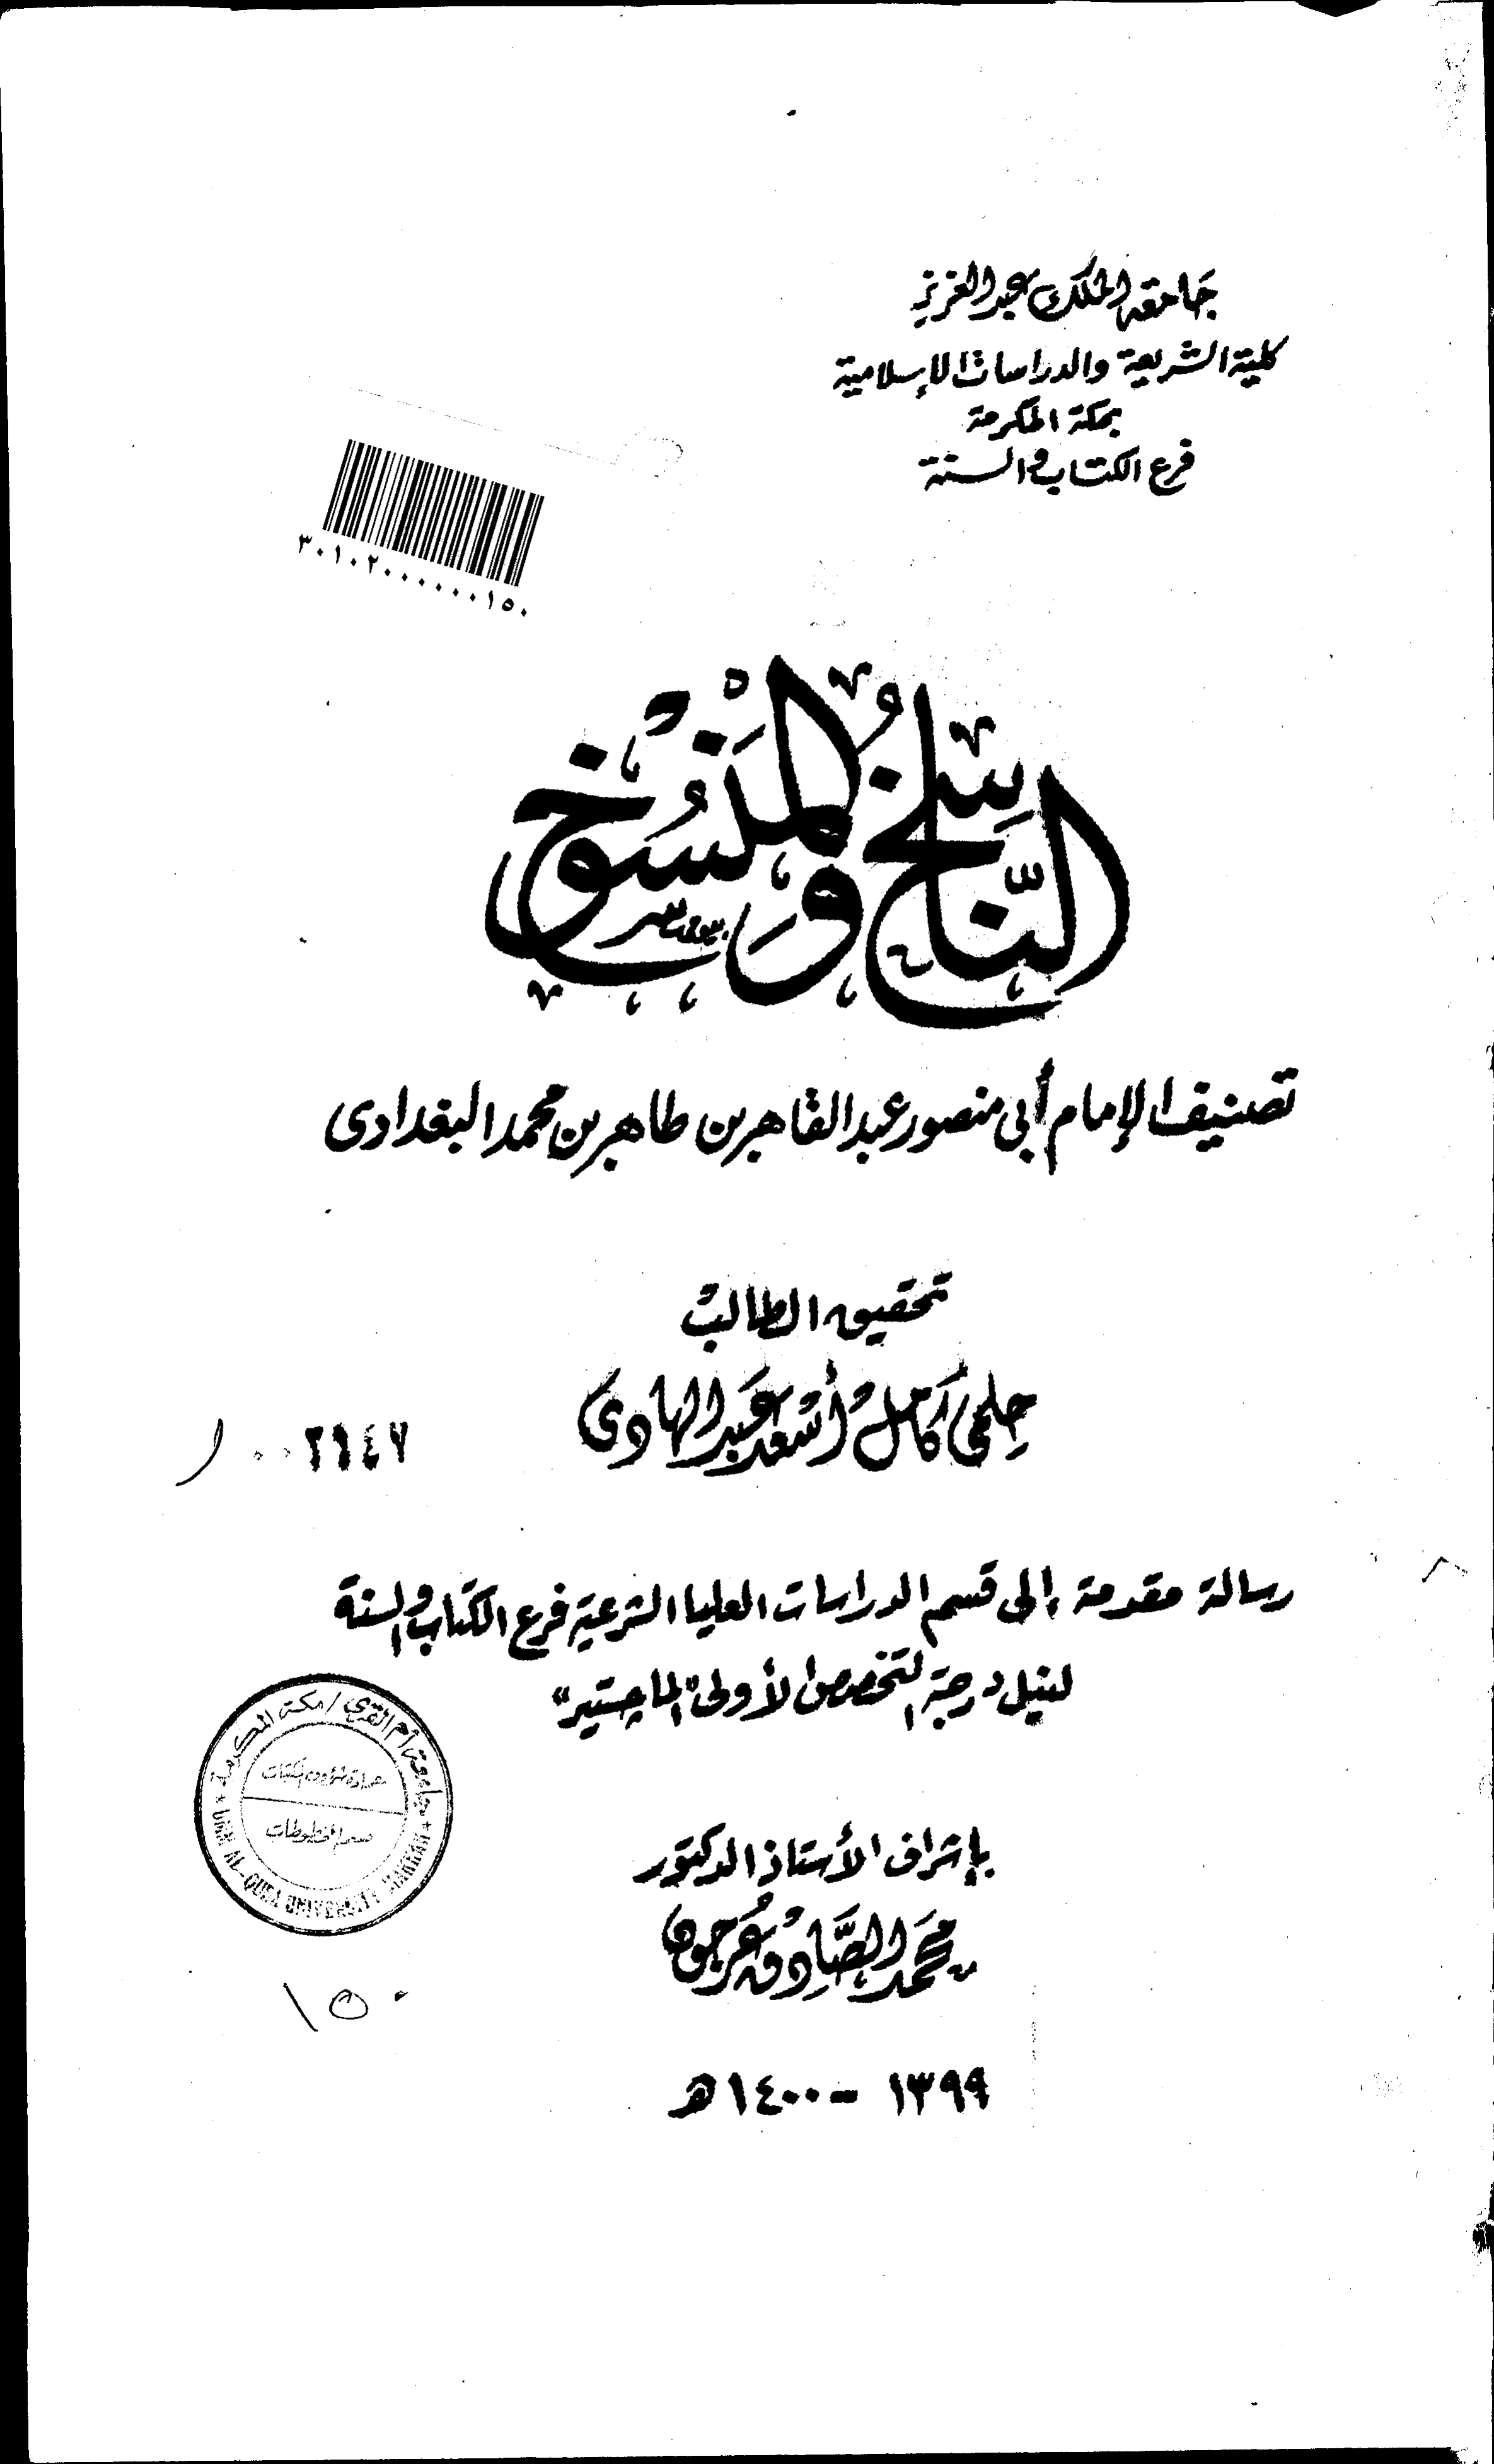 جامعة الملك عبد العزيز
كلية الشريعة والدراسات الإسلامية
بمكة المكرمة
فرع الكتاب والسنة
٣٠١٠٢٠٠٠٠٠٠١٥٠
النَّاسِخُ وَالمَنْسُوخ
تصنيف الإمام أبي منصور عبد القاهر بن طاهر بن محمد البغدادى
تحقيق الطالب
حِلمي كَامل أسْعد عَبد الهادي
رسالة مقدمة إلى قسم الدراسات العليا الشرعية فرع الكتاب والسنة
لنيل درجة التخصص الأولى "الماجستير"
جامعة أم القرى / مكة المكرمة
عمادة شؤون المكتبات
قسم المخطوطات
UMM AL-QURA UNIVERSITY MAKKAH
بإشراف الأستاذ الدكتور
محَمَّد الصَّادِق عُرجُون
١٥٠
١٣٩٩ - ١٤٠٠ هـ